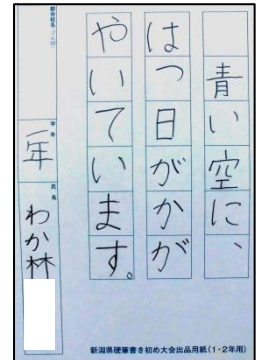 青い空に、
はつ日がかが
やいています。
一年
わか林
新潟県硬筆書き初め大会出品用紙(1・2年用)